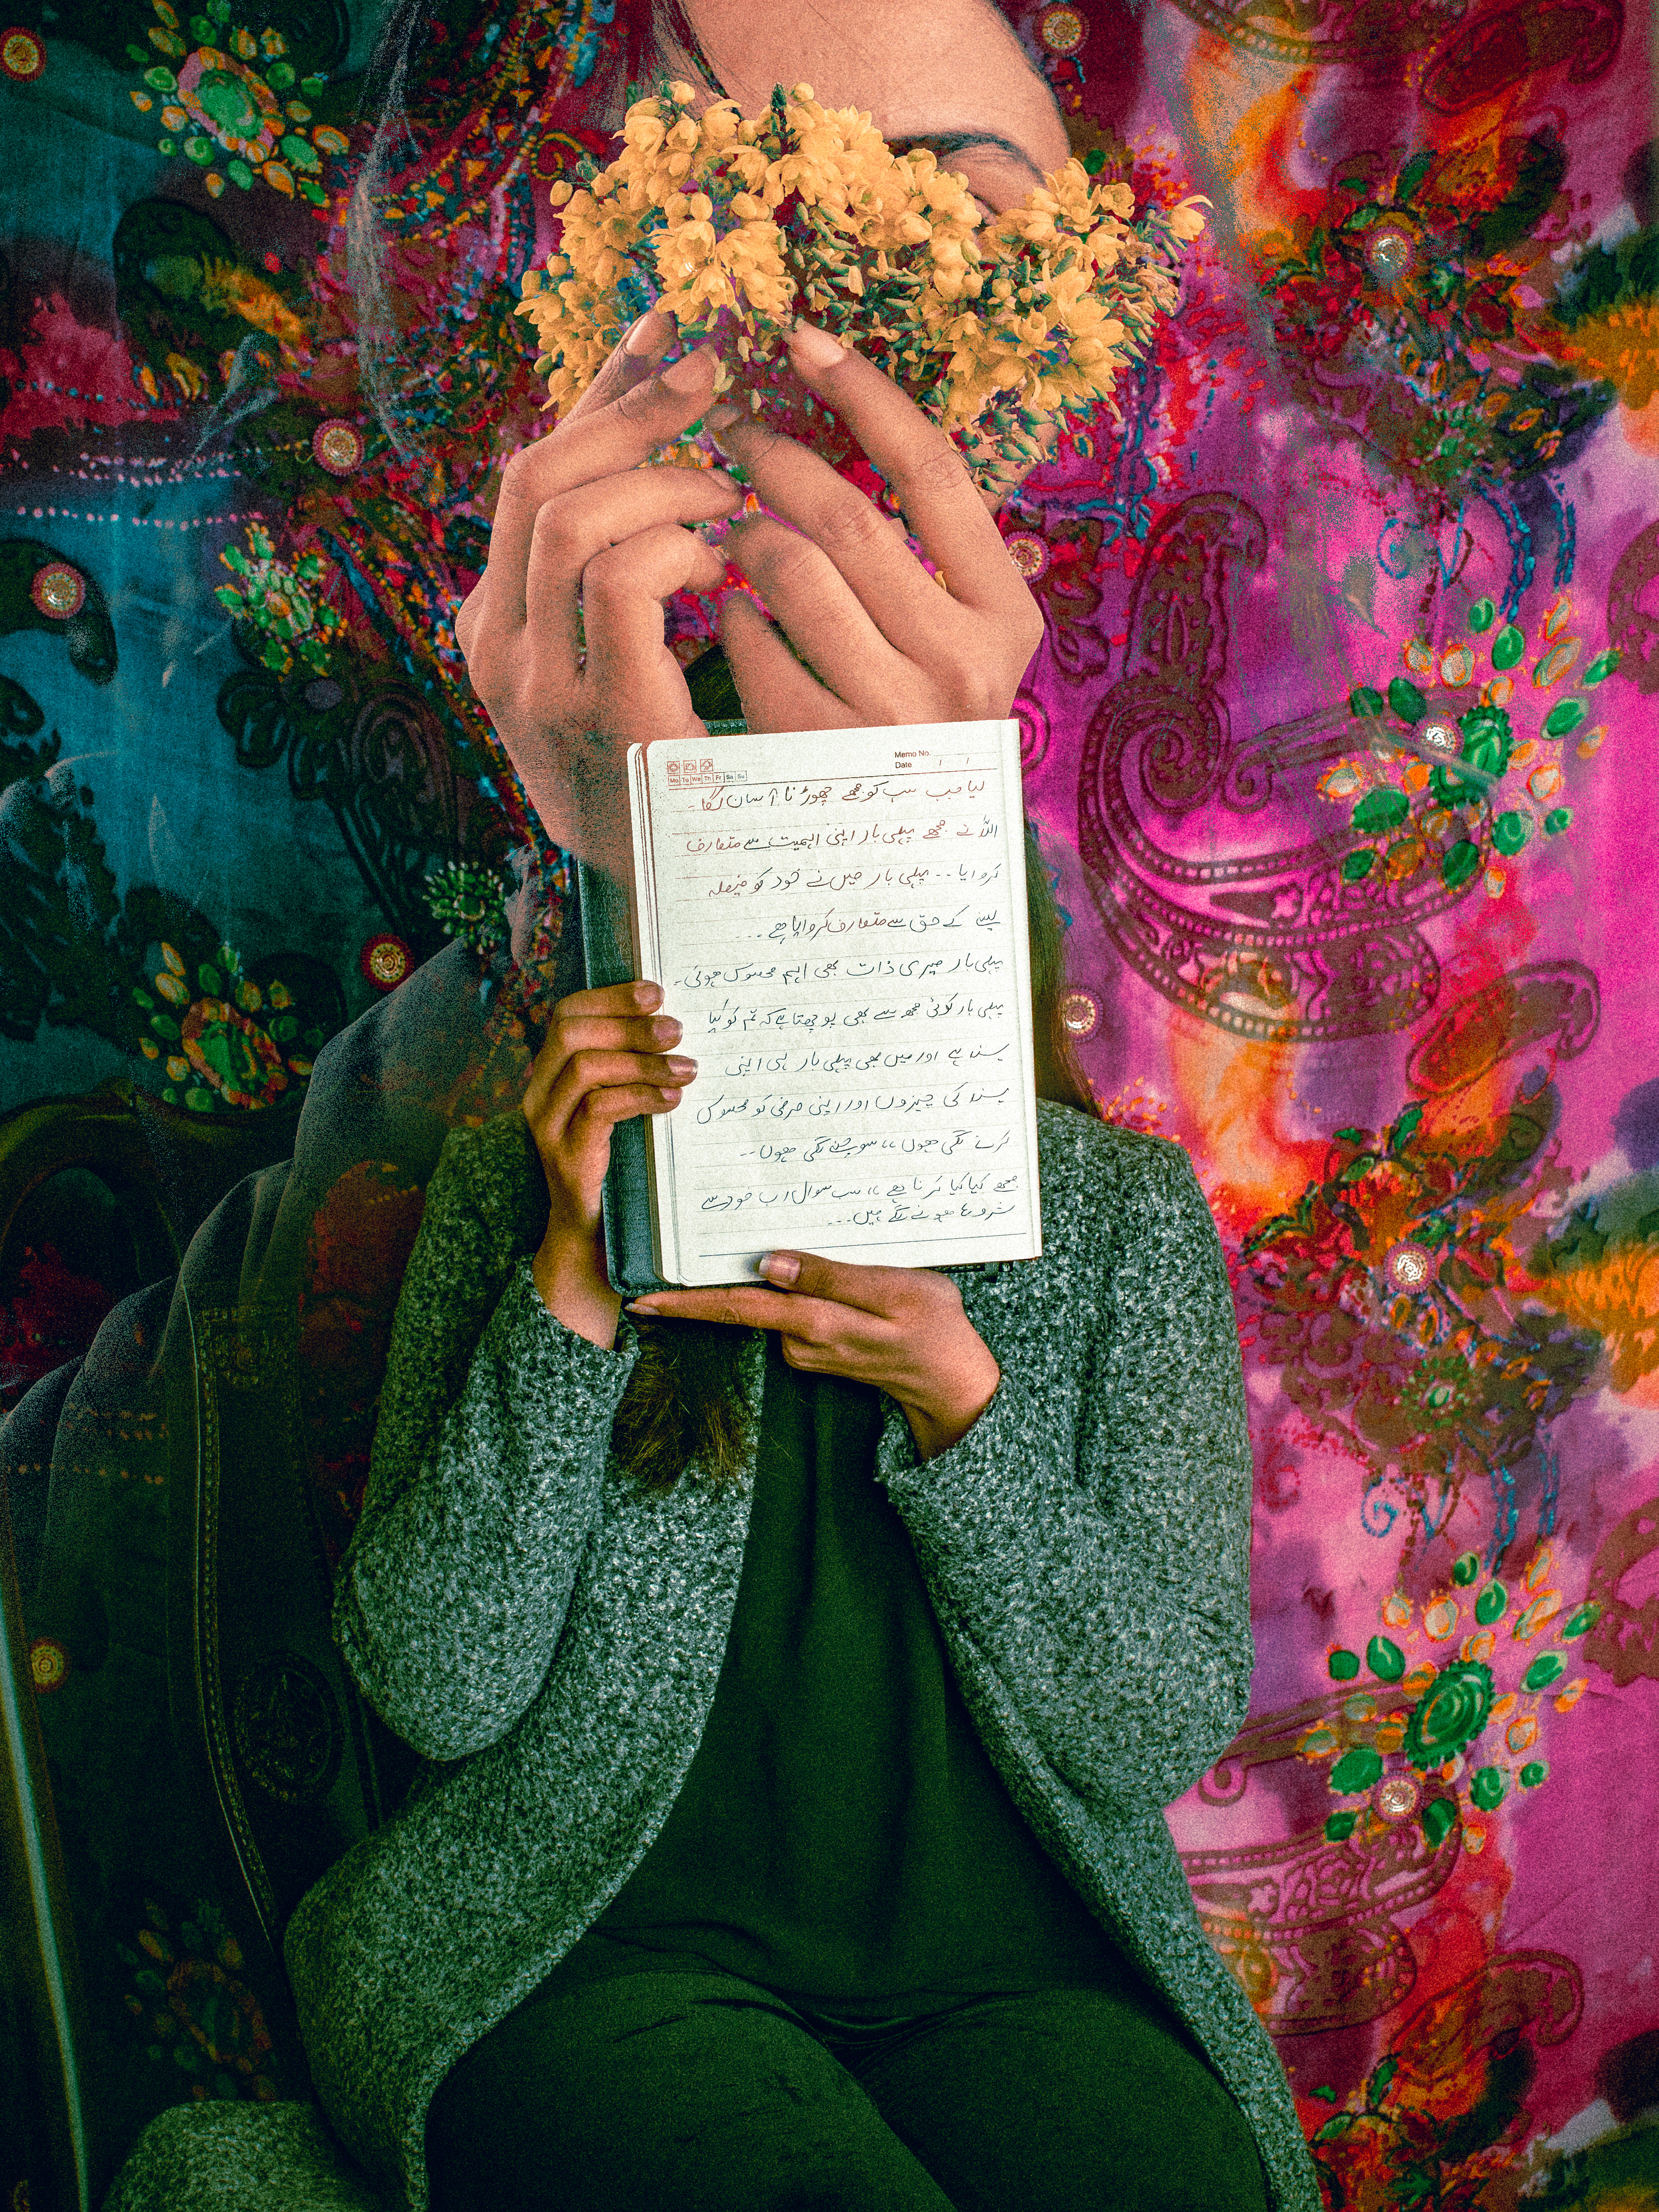 Memo No.
Mo Tu We Th Fr Sa Su
Date / /
لیا جب سب کو مجھے چھوڑنا آسان لگا۔
اللّٰہ نے مجھے پہلی بار اپنی اہمیت سے متعارف
کروایا۔۔ پہلی بار میں نے خود کو فیصلہ
لینے کے حق سے متعارف کروایا ہے۔۔۔
پہلی بار میری ذات بھی اہم محسوس ہوئی۔
پہلی بار کوئی مجھ سے بھی پوچھتا ہے کہ تم کو کیا
پسند ہے اور میں بھی پہلی بار ہی اپنی
پسند کی چیزوں اور اپنی مرضی کو محسوس
کرنے لگی ہوں،، سوچنے لگی ہوں۔۔
مجھے کیا کیا کرنا ہے،، سب سوال اب خود سے
شروع ہونے لگے ہیں۔۔۔